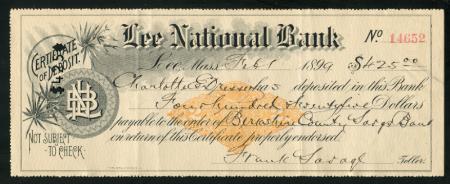 Lee National Bank
No 14652
CERTIFICATE
OF DEPOSIT.
Lee, Mass. Feb 1 1899 $425.00
Charlotte E Dresser has deposited in this Bank
Four hundred & twenty five Dollars
payable to the order of Berkshire County Savgs Bank
on return of this Certificate properly endorsed.
NOT SUBJECT
TO CHECK
Frank Savage Teller.
LNB